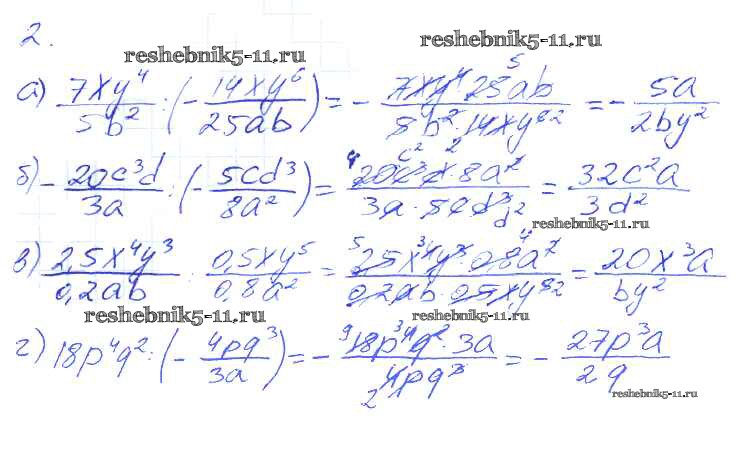 2.
reshebnik5-11.ru reshebnik5-11.ru
а) 7xy⁴/5b² : (− 14xy⁶/25ab) = − 7xy⁴ 25ab/5b²·14xy⁶ = − 5a/2by²
б) − 20c³d/3a : (− 5cd³/8a²) = 20c³d·8a²/3a·5cd³ = 32c²a/3d²
reshebnik5-11.ru
в) 2,5x⁴y³/0,2ab : 0,5xy⁵/0,8a² = 2,5x⁴y³·0,8a²/0,2ab·0,5xy⁵ = 20x³a/by²
reshebnik5-11.ru reshebnik5-11.ru
г) 18p⁴q² : (− 4pq³/3a) = − 18p⁴q²·3a/4pq³ = − 27p³a/2q
reshebnik5-11.ru